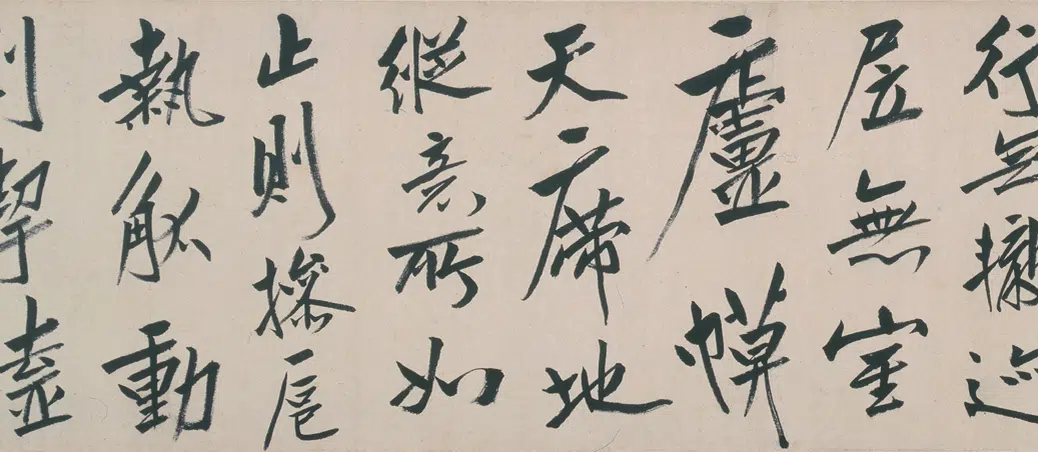 行无轍迹
居無室
廬幙
天席地
縱意所如
止則操卮
執觚動
則挈榼